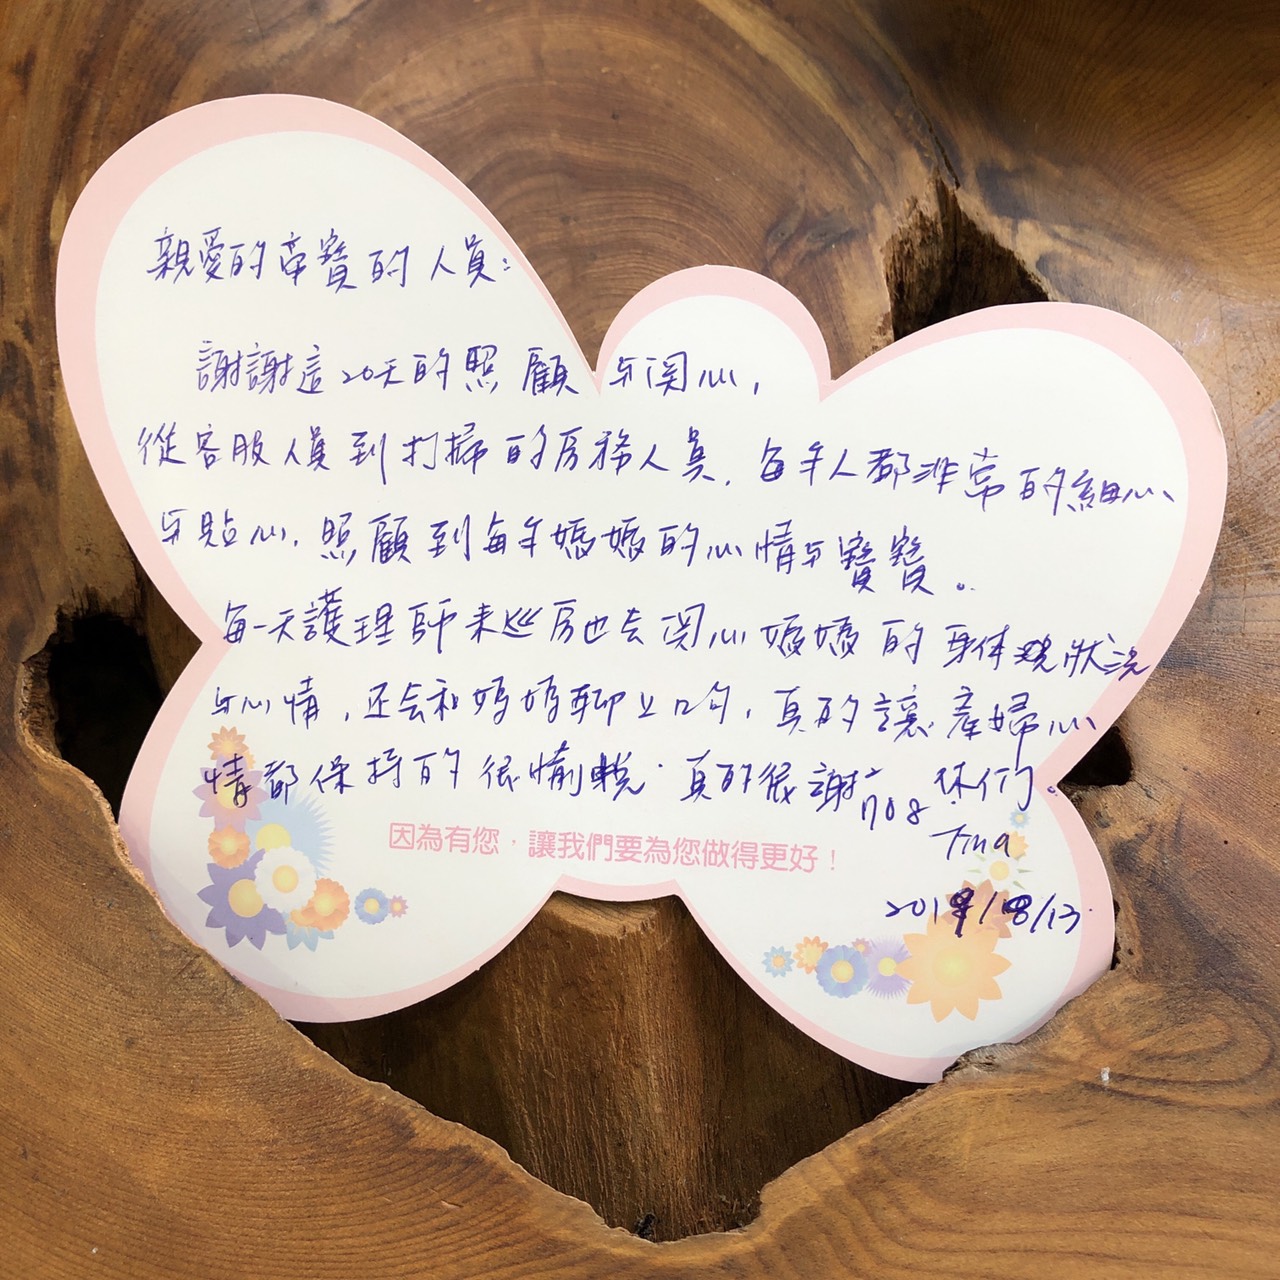 親愛的帝寶的人員:
謝謝這20天的照顧与関心,
從客服人員到打掃的房務人員,每个人都非常的細心、
与貼心,照顧到每个媽媽的心情与寶寶。
每一天護理師來巡房也去関心媽媽的身体狀況
与心情,还会和媽媽聊上口句,真的讓產婦心
情都保持的很愉悅.真的很謝謝你们。
1708
Tina
2019/08/13.
因為有您,讓我們要為您做得更好!